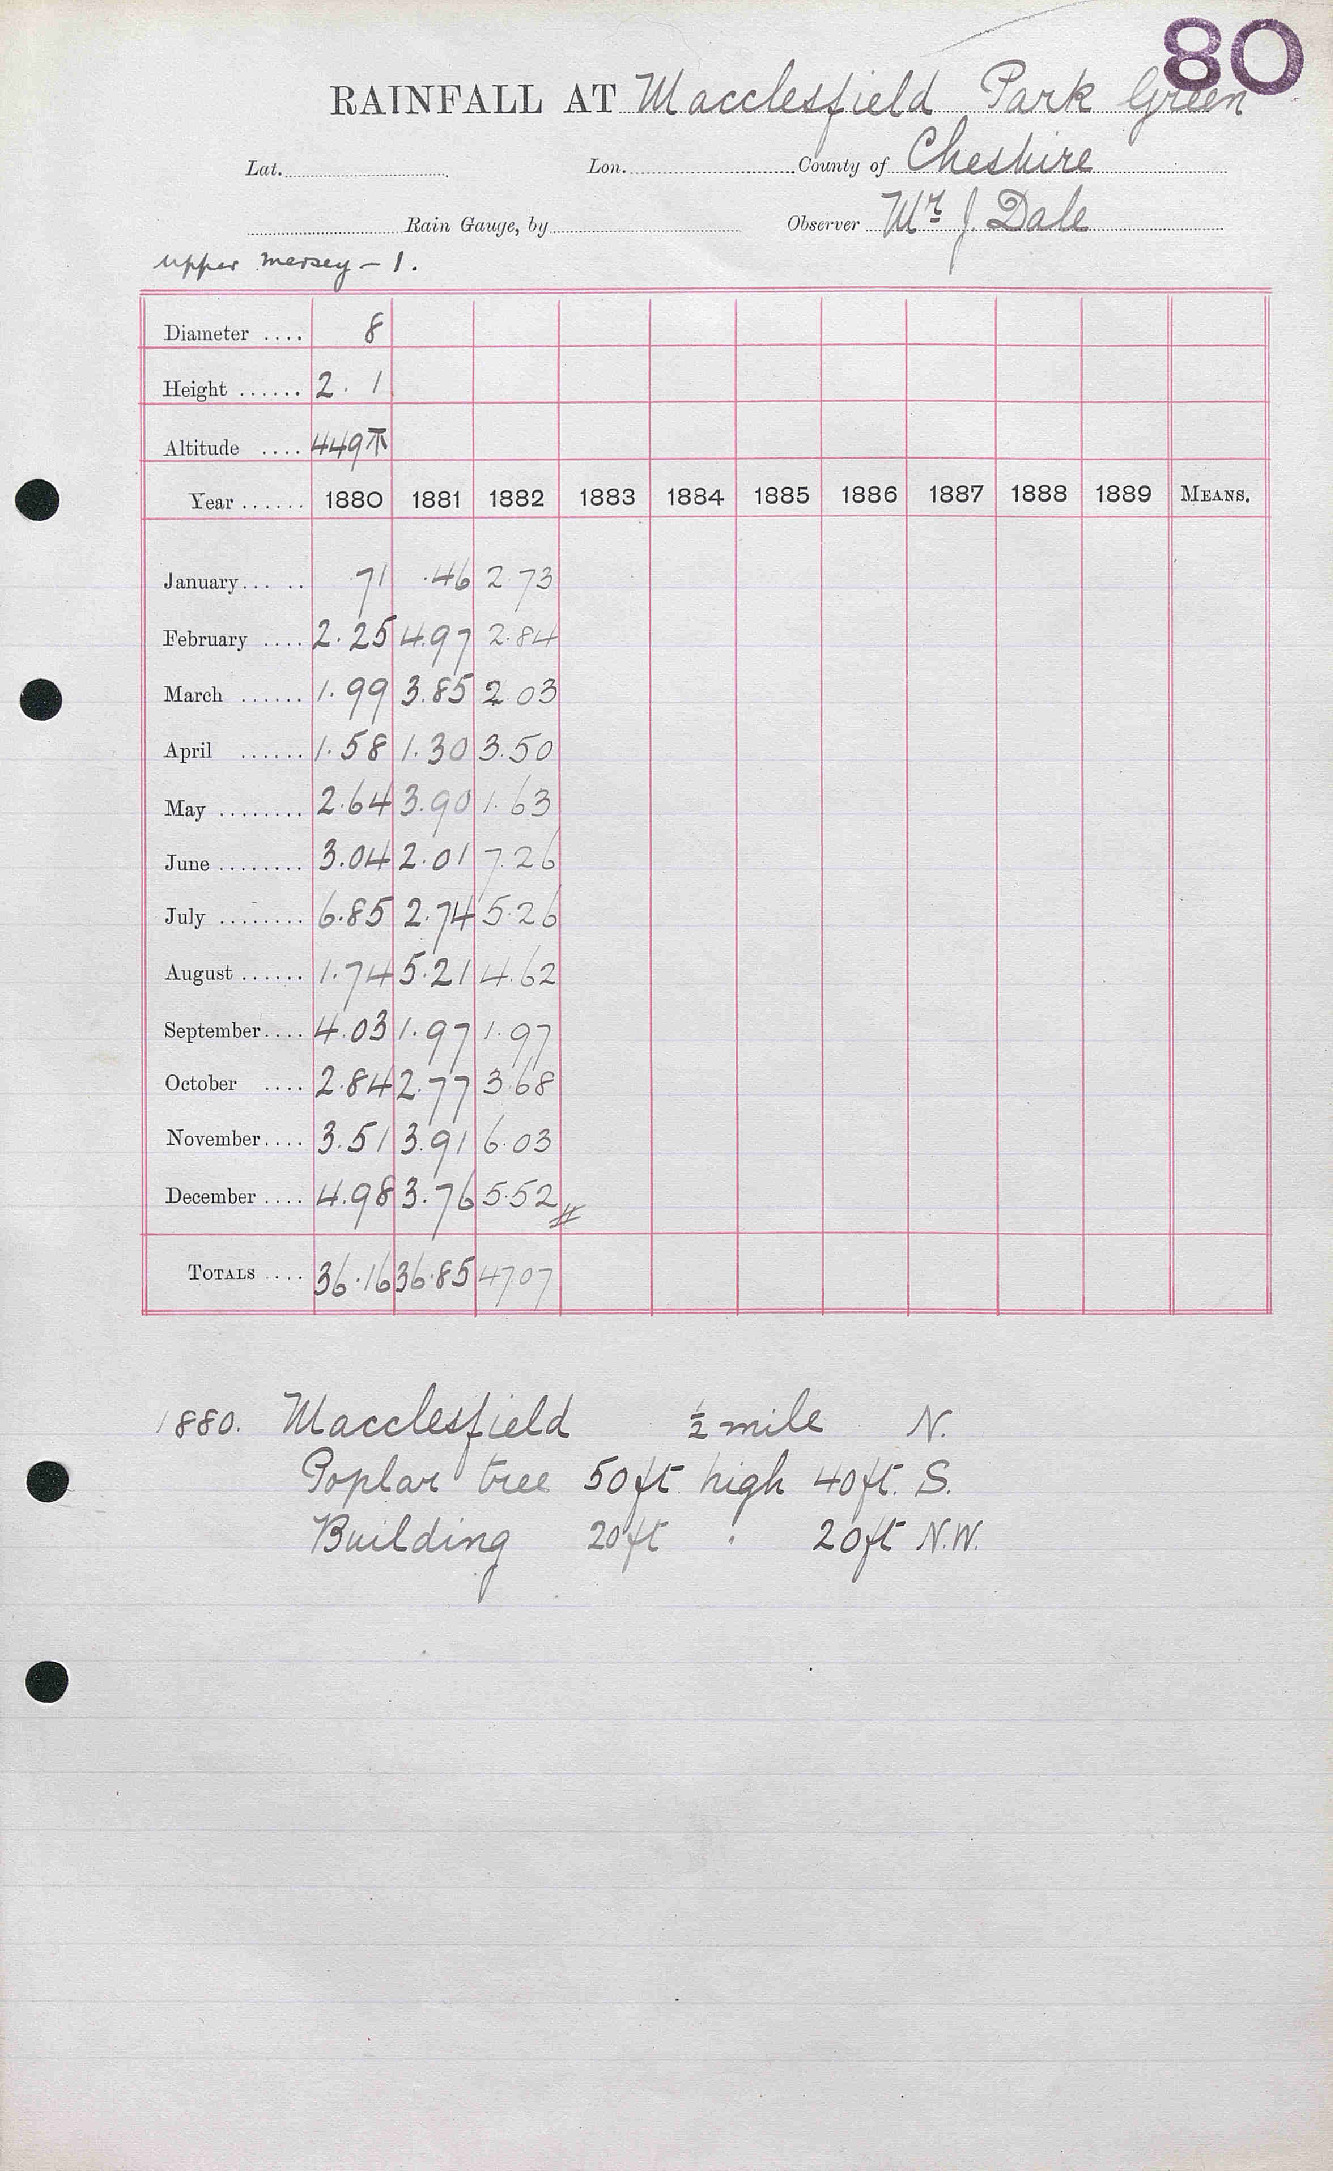 80
RAINFALL AT Macclesfield Park Green
Lat. Lon. County of Cheshire
Rain Gauge, by Observer Mr J. Dale
Upper Mersey - 1.
Diameter .... 8
Height ...... 2. 1
Altitude .... 449 T
Year ...... 1880 1881 1882 1883 1884 1885 1886 1887 1888 1889 MEANS.
January ... .. .71 .46 2.73
February .... 2.25 4.97 2.84
March ...... 1.99 3.85 2.03
April ...... 1.58 1.30 3.50
May ........ 2.64 3.90 1.63
June ........ 3.04 2.01 7.26
July ........ 6.85 2.74 5.26
August ...... 1.74 5.21 4.62
September .... 4.03 1.97 1.97
October .... 2.84 2.77 3.68
November .... 3.51 3.91 6.03
December .... 4.98 3.76 5.52
TOTALS .... 36.16 36.85 47.07
1880. Macclesfield ½ mile N.
Poplar tree 50ft high 40ft. S.
Building 20ft " 20ft N.W.